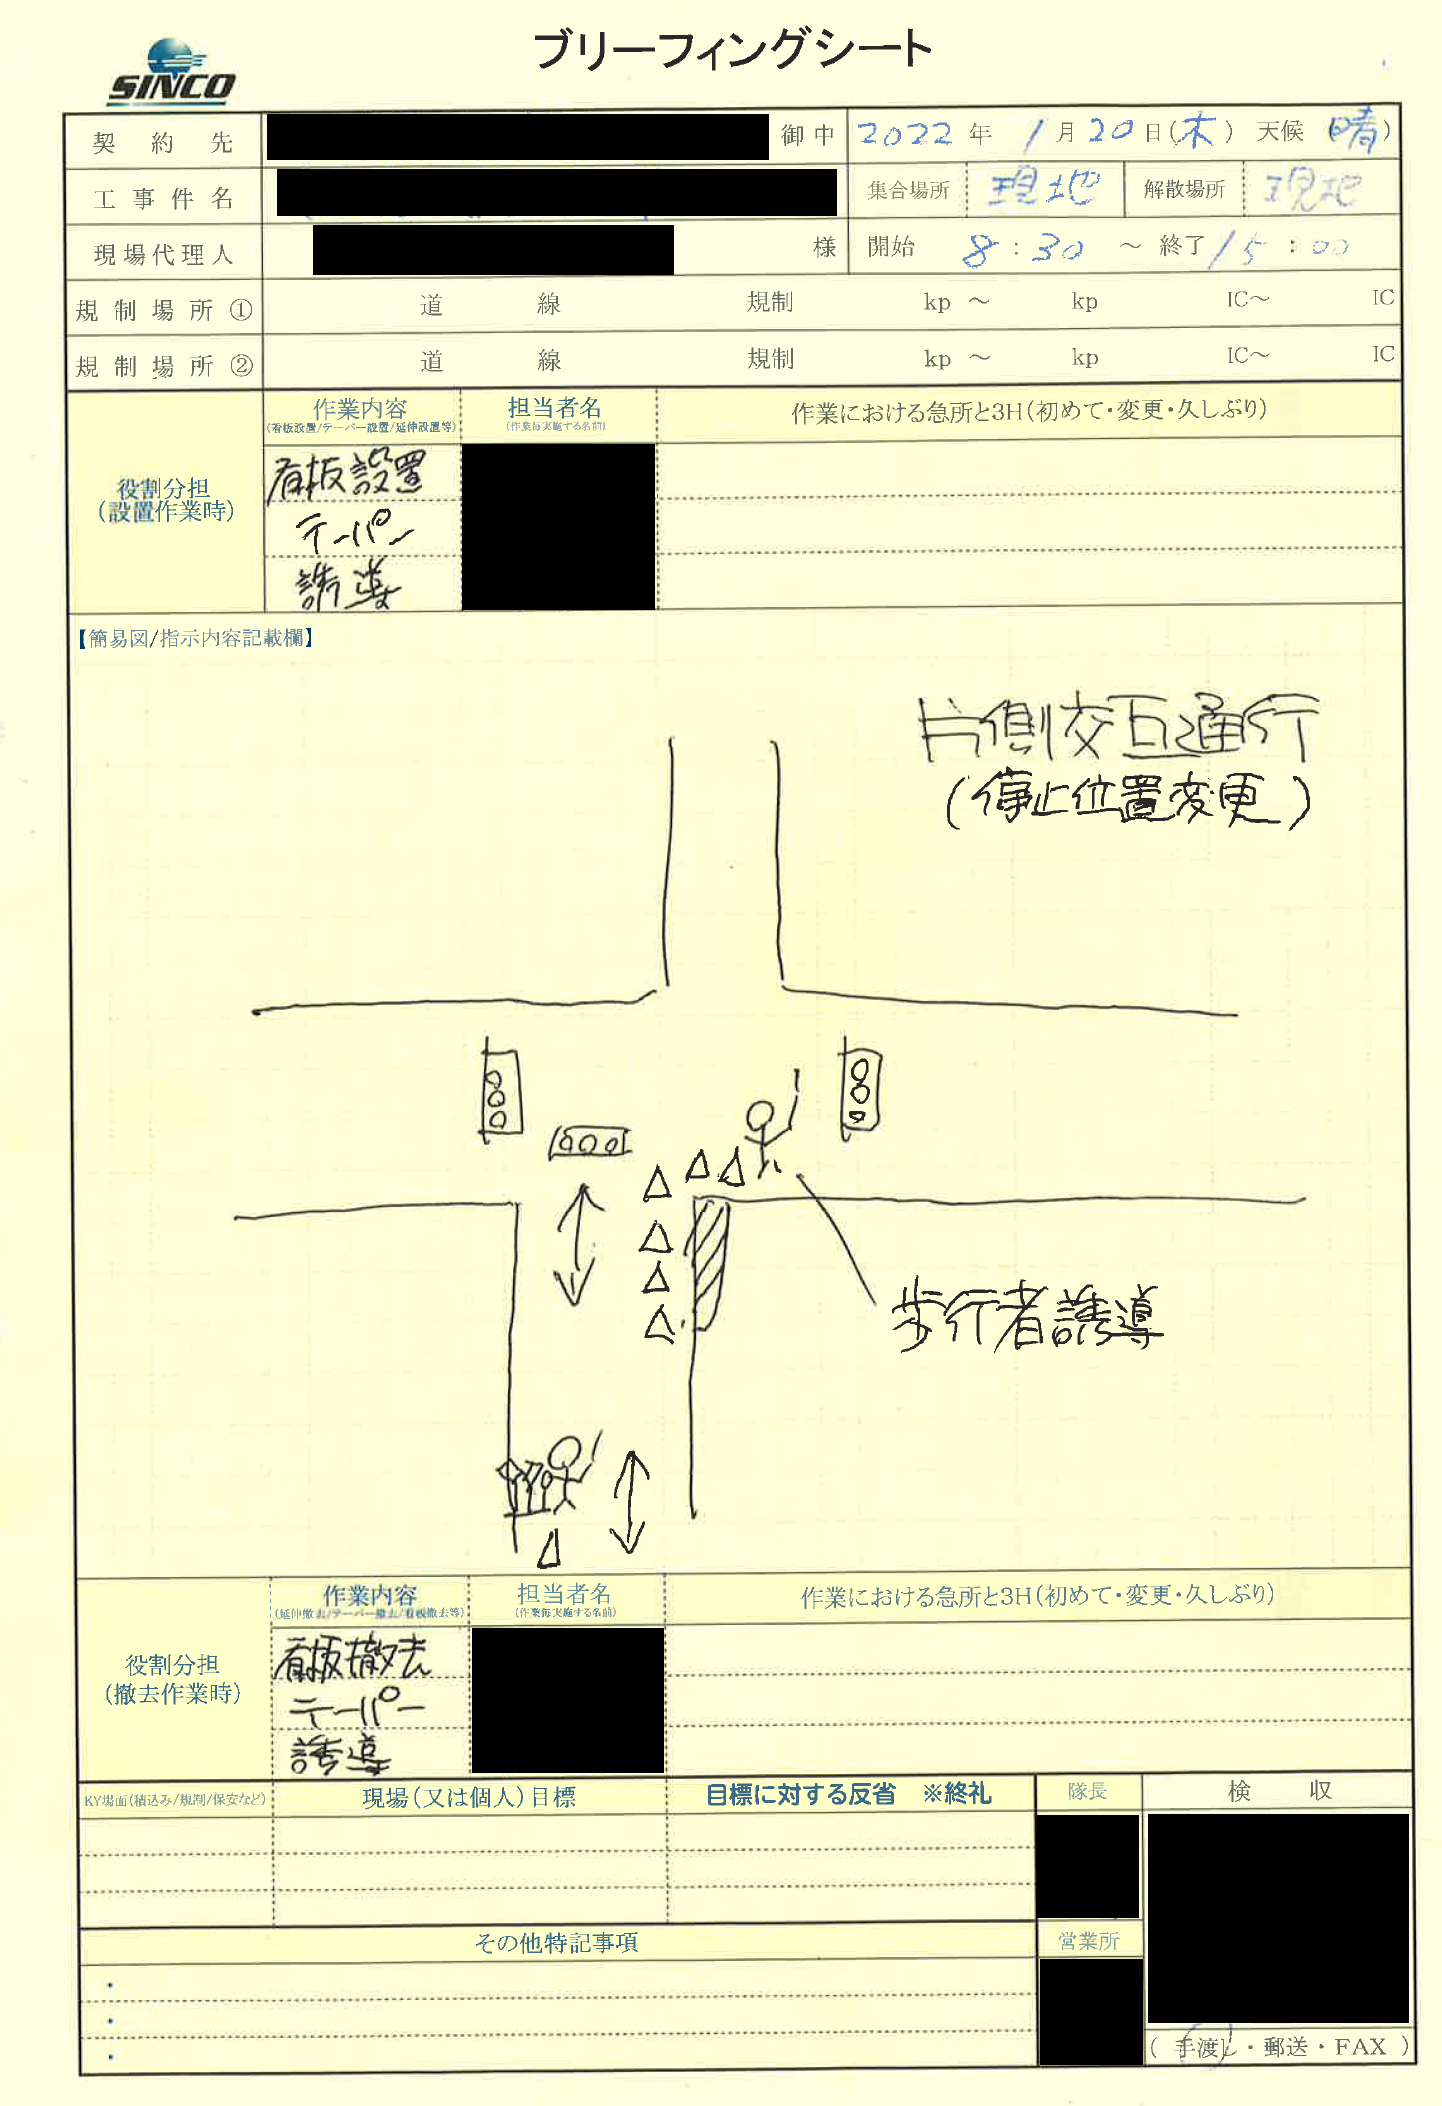 ブリーフィングシート
SINCO
契約先 御中 2022年 1月20日(木) 天候(晴)
工事件名 集合場所 現地 解散場所 現地
現場代理人 様 開始 8:30 ～ 終了 15:00
規制場所① 道 線 規制 kp ～ kp IC～ IC
規制場所② 道 線 規制 kp ～ kp IC～ IC
作業内容 担当者名 作業における急所と3H(初めて・変更・久しぶり)
(看板設置/テーパー設置/延伸設置等) (作業毎実施する名前)
役割分担
(設置作業時)
看板設置
テーパー
誘導
【簡易図/指示内容記載欄】
片側交互通行
(停止位置変更)
歩行者誘導
作業内容 担当者名 作業における急所と3H(初めて・変更・久しぶり)
(延伸撤去/テーパー撤去/看板撤去等) (作業毎実施する名前)
役割分担
(撤去作業時)
看板撤去
テーパー
誘導
KY場面(積込み/規制/保安など) 現場(又は個人)目標 目標に対する反省 ※終礼 隊長 検収
その他特記事項 営業所
・
・
・
(手渡し・郵送・FAX)